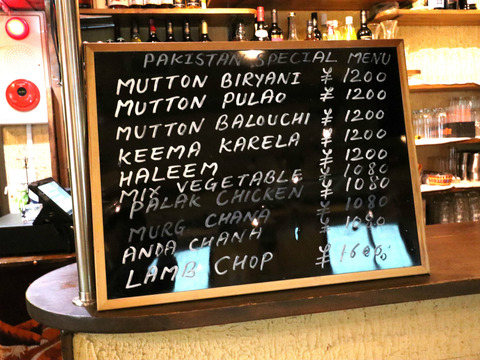 PAKISTAN SPECIAL MENU
MUTTON BIRYANI ¥ 1200
MUTTON PULAO ¥ 1200
MUTTON BALOUCHI ¥ 1200
KEEMA KARELA ¥ 1200
HALEEM ¥ 1200
MIX VEGETABLE ¥ 1080
PALAK CHICKEN ¥ 1080
MURG CHANA ¥ 1080
ANDA CHANA ¥
LAMB CHOP ¥ 1600